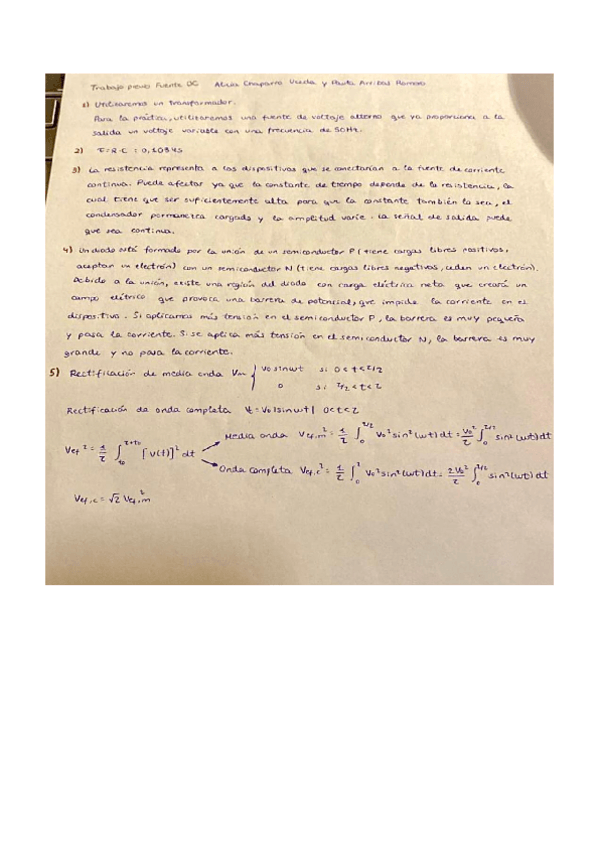 Trabajo previo Fuente DC Alicia Chaparro Uceda y Paula Arribas Romero
1) Utilizaremos un transformador.
Para la práctica, utilizaremos una fuente de voltaje alterno que ya proporciona a la
salida un voltaje variable con una frecuencia de 50Hz.
2) τ=R·C = 0,1034s
3) La resistencia representa a los dispositivos que se conectarían a la fuente de corriente
continua. Puede afectar ya que la constante de tiempo depende de la resistencia, la
cual tiene que ser suficientemente alta para que la constante también lo sea, el
condensador permanezca cargado y la amplitud varíe. La señal de salida puede
que sea continua.
4) Un diodo está formado por la unión de un semiconductor P (tiene cargas libres positivas,
aceptan un electrón) con un semiconductor N (tiene cargas libres negativas, ceden un electrón).
Debido a la unión, existe una región del diodo con carga eléctrica neta que creará un
campo elétrico que provoca una barrera de potencial, que impide la corriente en el
dispositivo. Si aplicamos más tensión en el semiconductor P, la barrera es muy pequeña
y pasa la corriente. Si se aplica más tensión en el semiconductor N, la barrera es muy
grande y no pasa la corriente.
5) Rectificación de media onda Vm { V0 sinωt si 0<t<τ/2
0 si τ/2<t<τ
Rectificación de onda completa Vc = V0|sinωt| 0<t<τ
Vef² = 1/τ ∫_{t0}^{τ+t0} [v(t)]² dt
Media onda Vef,m² = 1/τ ∫_0^{τ/2} V0² sin²(ωt)dt = V0²/τ ∫_0^{τ/2} sin²(ωt)dt
Onda completa Vef,c² = 1/τ ∫_0^τ V0² sin²(ωt)dt = 2V0²/τ ∫_0^{τ/2} sin²(ωt)dt
Vef,c = √2 Vef,m²